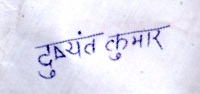 दुष्यंत कुमार